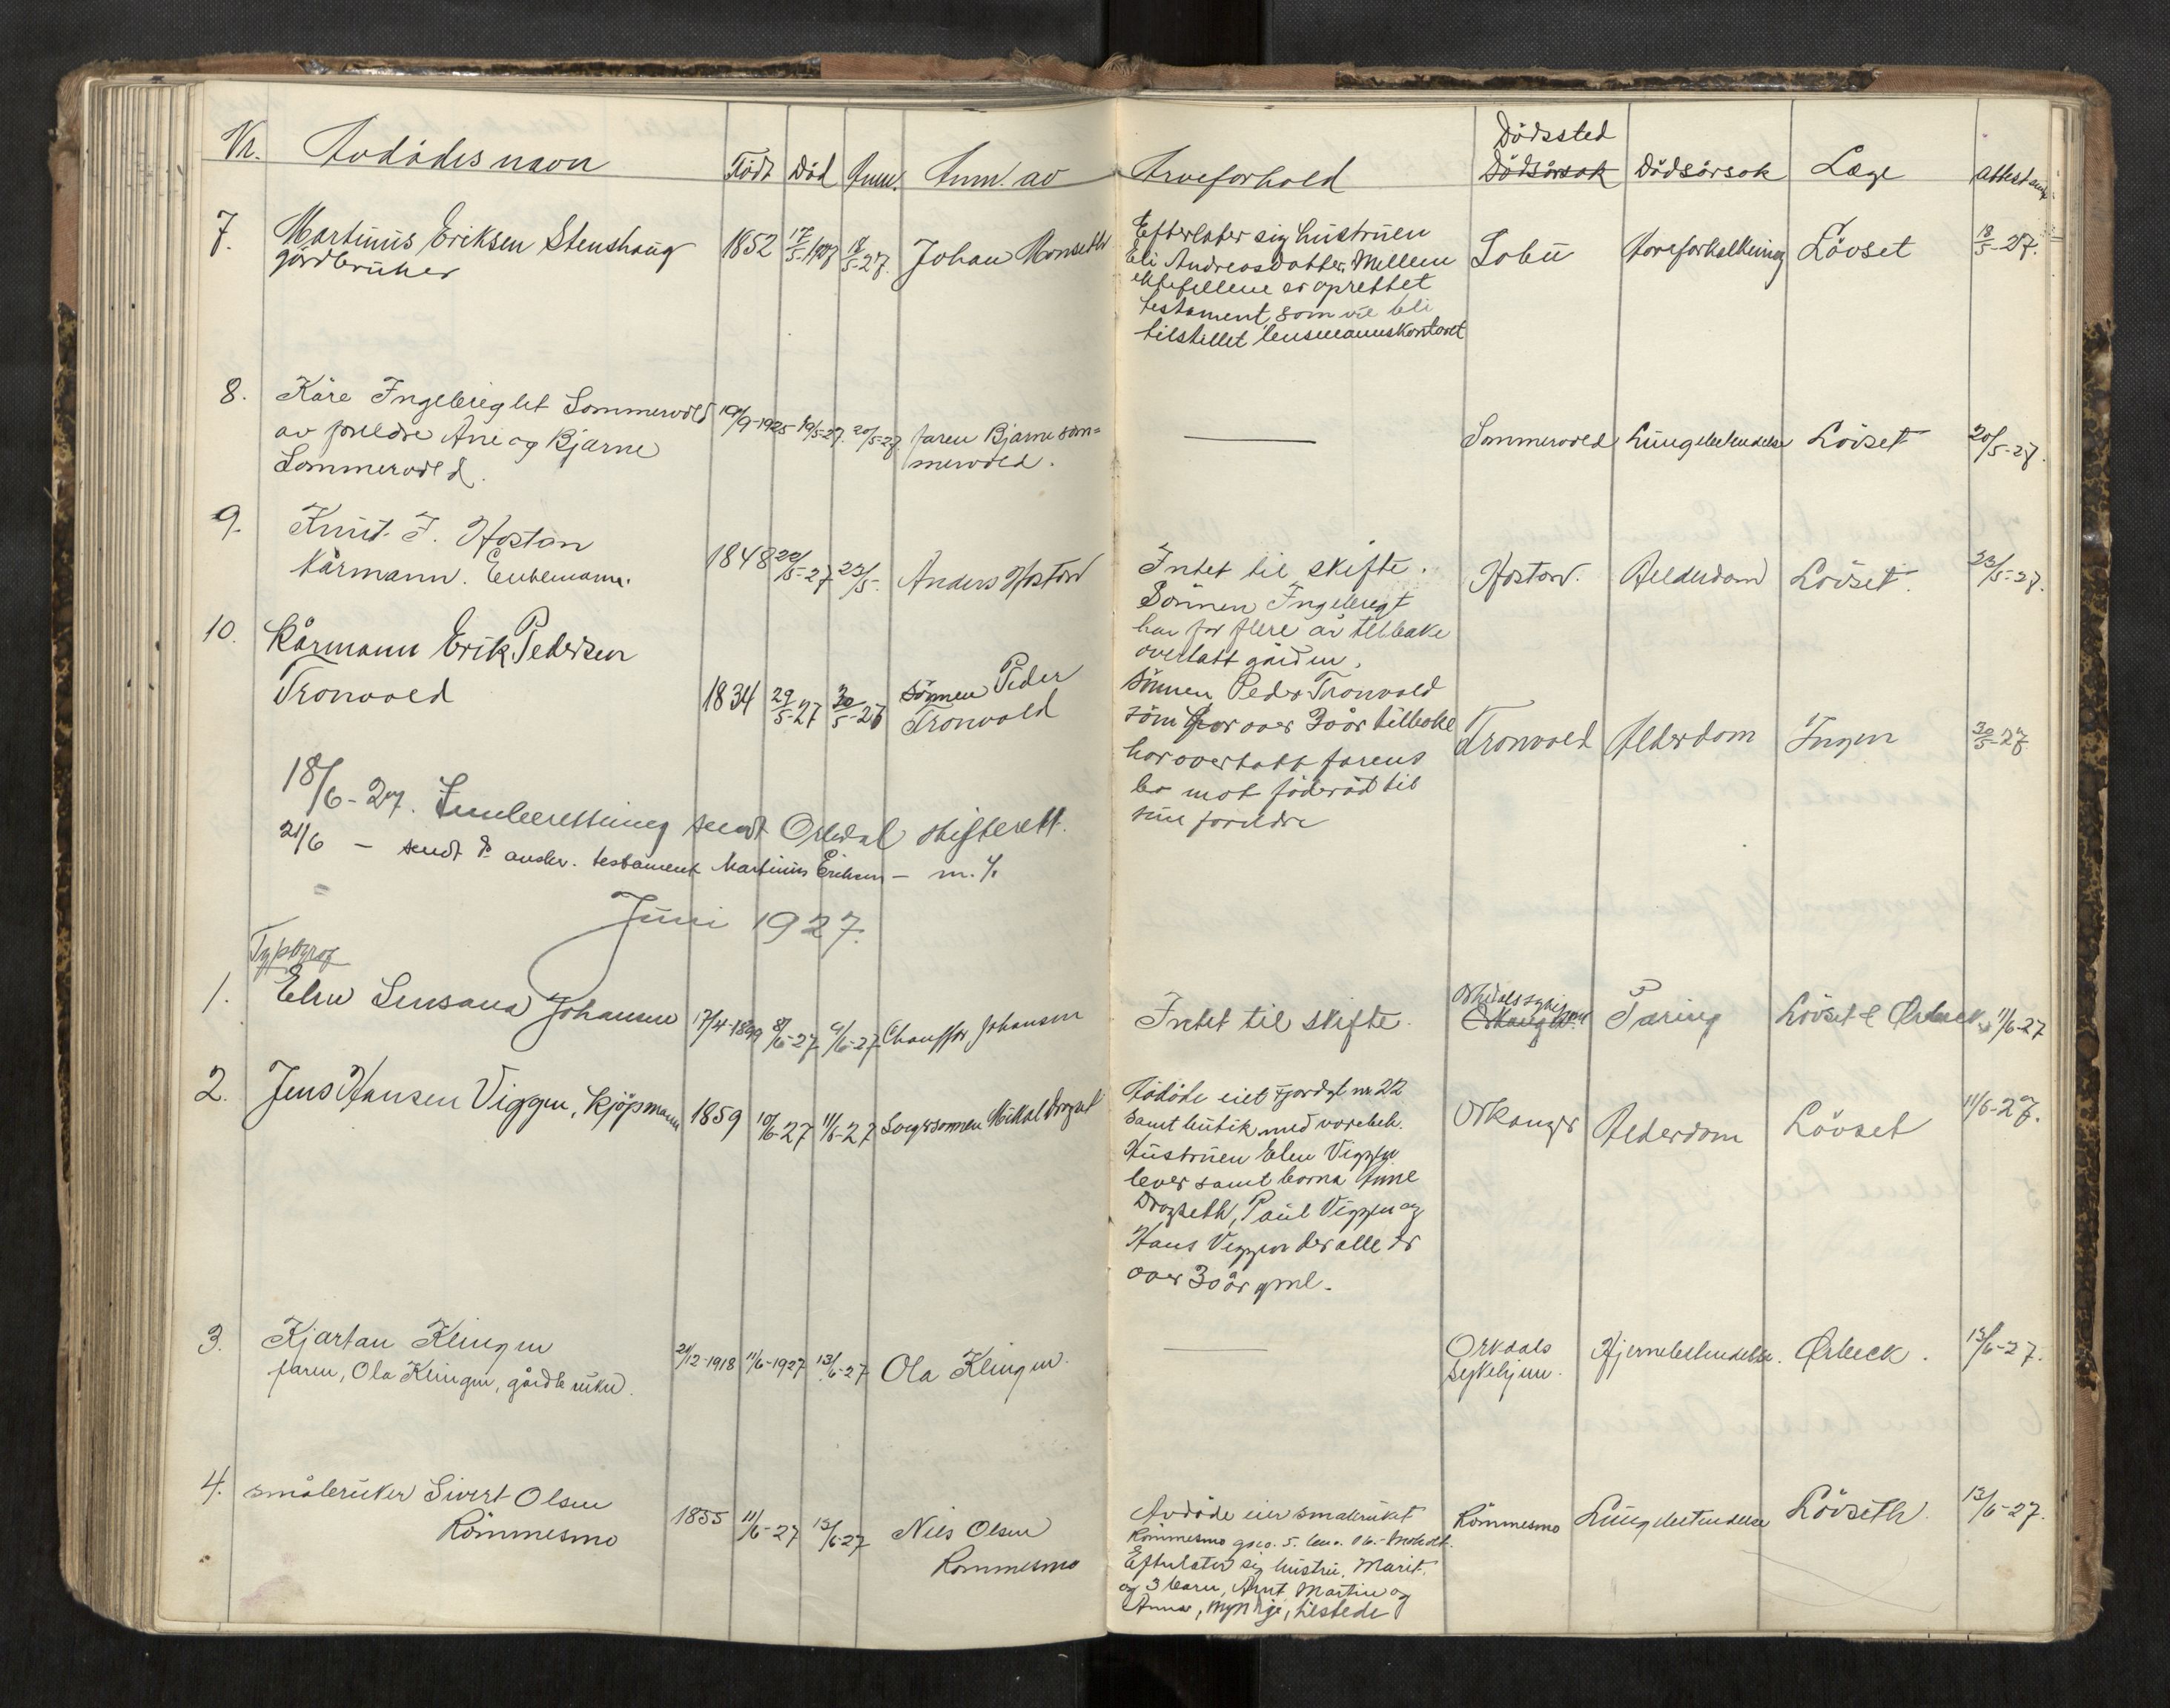 Nr. Avdødes navn Født Død Anm. Anm. av Arveforhold Dødssted Dødsårsak Dødsårsak Læge Attest
7. Martinus Eriksen Stenshaug 1852 17/5-1927 18/5-27. Johan Monseth Efterlater sig hustruen Lobu Aareforkalkning Lövset 18/5-27.
gårdbruker Eli Andreasdatter. Mellem
ektefellene er oprettet
testament, som vil bli
tilstellet lensmannskontoret
8. Kåre Ingebrigt Sommervold 19/9-1925 19/5-27. 20/5-27. faren Bjarne Som= — Sommervold Lungebetendelse Lövset 20/5-27.
av foreldre Ane og Bjarne mervold.
Sommervold.
9. Knut J. Hoston 1848 22/5-27 23/5. Anders Hoston Intet til skifte. Hoston. Alderdom Lövset. 23/5-27.
Kårmann. Enkemann. Sönnen Ingebrigt
har for flere år tilbake
overtatt gården.
10. Kårmann Erik Pedersen 1834 29/5-27 30/5-27 Sönnen Peder Sönnen Peder Tronvold Tronvold Alderdom Ingen 30/5-27
Tronvold Tronvold som for over 30 år tilbake
har overtatt farens
bo mot föderåd til
sine foreldre
18/6-27. Innberetning sendt Orkdal skifterett.
21/6 — sendt do. testament Martinus Eriksen —
Juni 1927.
1. Elen Susana Johansen 17/4-1899 8/6-27 9/6-27 Chauffør Johansen Intet til skifte. Orkdals sykehjem Tæring Lövset & Ørbeck 11/6-27
2. Jens Hansen Viggen, Kjöpmann 1859 10/6-27 11/6-27 Svigersønnen Mikal Dragset Avdöde eiet Fjordgt nr 22 Orkanger Alderdom Lövset 11/6-27.
samt butik med varebeh.
Hustruen Elen Viggen
lever samt barna Anne
Dragseth, Paul Viggen og
Hans Viggen der alle er
over 30 år gml.
3. Kjartan Klingen 21/12-1918 11/6-1927 13/6-27 Ola Klingen. — Orkdals Hjernebetendelse. Ørbeck. 13/6-27.
faren, Ola Klingen, gårdbruker. Sykehjem.
4. småbruker Sivert Olsen 1855 11/6-27 13/6-27 Nils Olsen Avdöde eier småbruket Römmesmo Lungebetendelse Lövseth. 13/6-27.
Römmesmo Rommesmo Römmesmo
Efterlater sig hustru, Marit.
og 3 barn, Arnt Martin og
Anna, myndige, tilstede